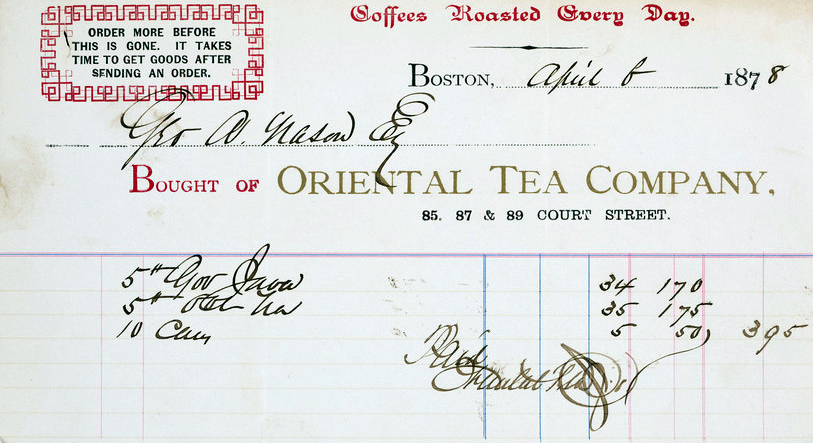 Coffees Roasted Every Day.
ORDER MORE BEFORE
THIS IS GONE. IT TAKES
TIME TO GET GOODS AFTER
SENDING AN ORDER.
BOSTON, April 6 1878
Geo A. Nason Esq
BOUGHT OF ORIENTAL TEA COMPANY,
85. 87 & 89 COURT STREET.
5# Gov Java 34 170
5# 35 175
10 Cans 5 50) 395
Paid
Oriental Tea